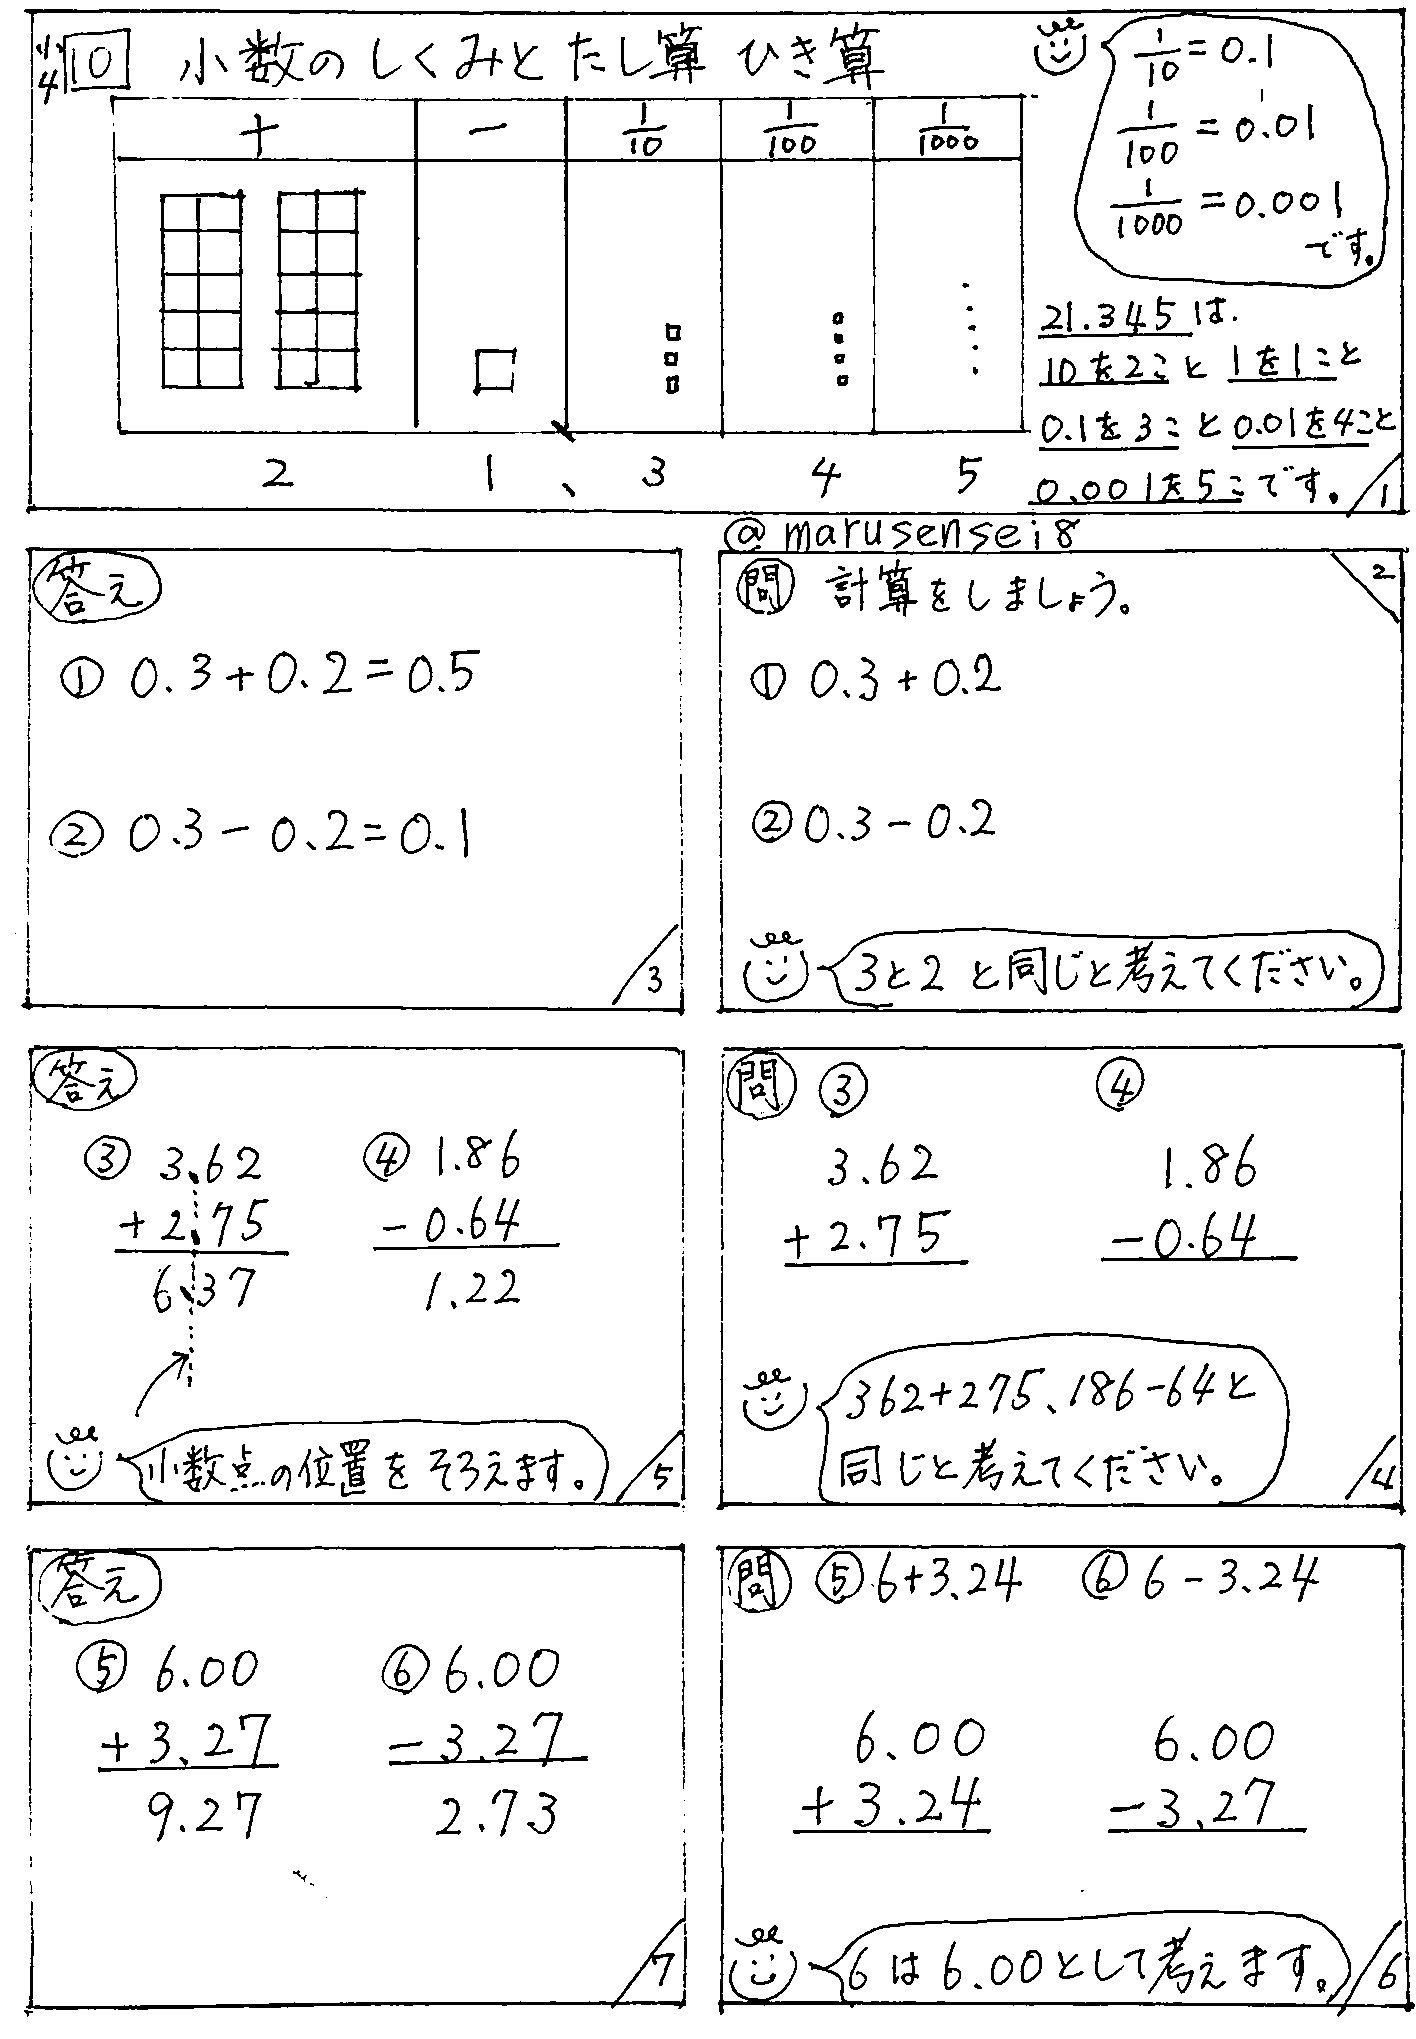 小4 10 小数のしくみとたし算 ひき算
十 一 1/10 1/100 1/1000
2 1 、 3 4 5
1/10 = 0.1
1/100 = 0.01
1/1000 = 0.001
です。
21.345は、
10を2こと 1を1こと
0.1を3こと 0.01を4こと
0.001を5こです。
1
@marusensei8
問 計算をしましょう。
2
① 0.3+0.2
② 0.3-0.2
3と2 と同じと考えてください。
答え
① 0.3+0.2=0.5
② 0.3-0.2=0.1
3
問 ③ ④
3.62 1.86
+2.75 -0.64
362+275、186-64と
同じと考えてください。
4
答え
③ 3.62 ④ 1.86
+2.75 -0.64
6.37 1.22
小数点の位置をそろえます。
5
問 ⑤ 6+3.24 ⑥ 6-3.24
6.00 6.00
+3.24 -3.27
6は6.00として考えます。
6
答え
⑤ 6.00 ⑥ 6.00
+3.27 -3.27
9.27 2.73
7